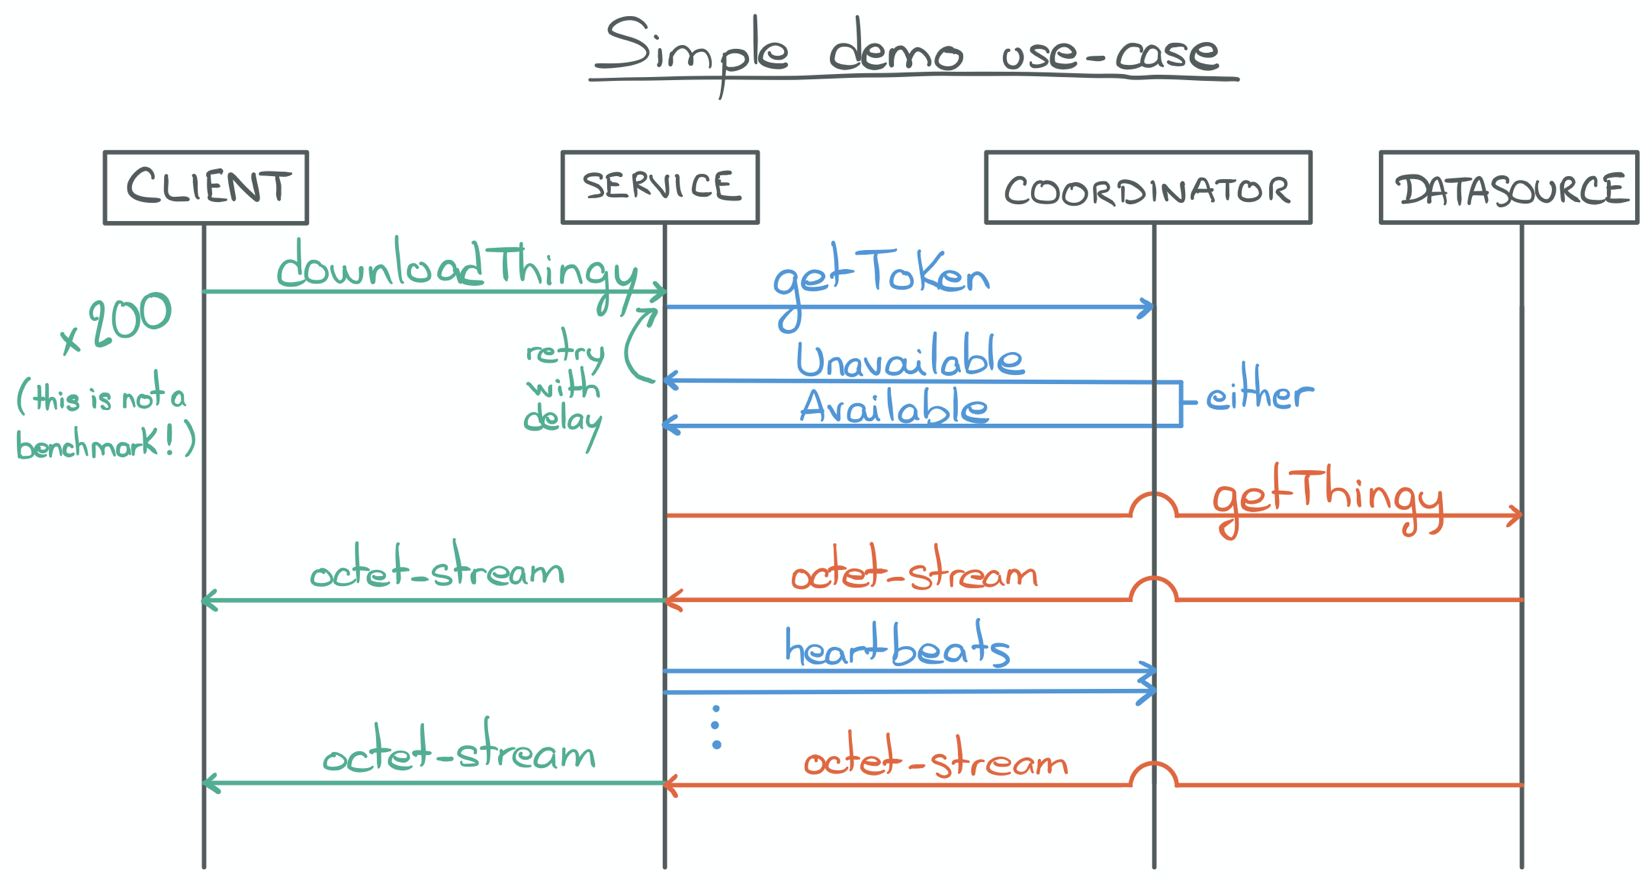 Simple demo use-case
CLIENT
SERVICE
COORDINATOR
DATASOURCE
downloadThingy
getToken
x200
(this is not a
benchmark!)
retry
with
delay
Unavailable
Available
either
getThingy
octet-stream
octet-stream
heartbeats
octet-stream
octet-stream